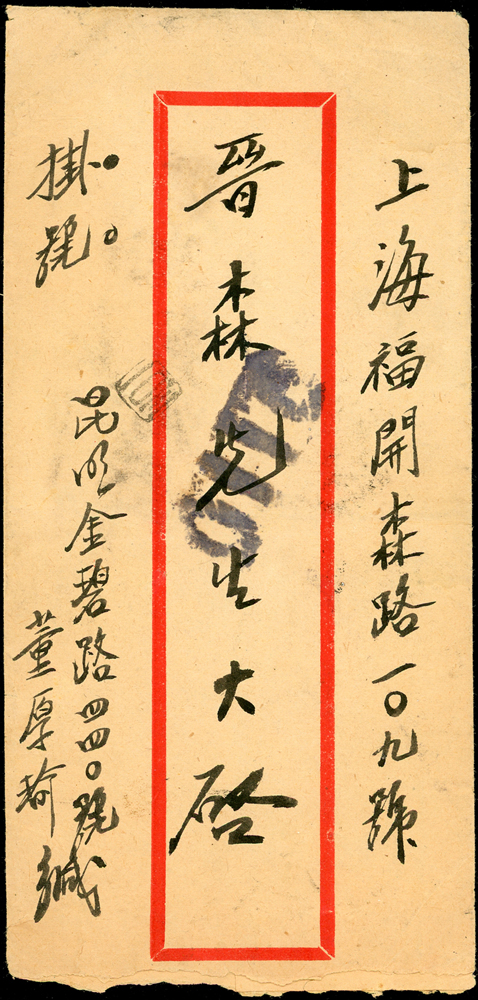 上海福開森路一〇九號
晉森先生大啓
掛號。
昆明金碧路四四〇號緘
董厚瑜